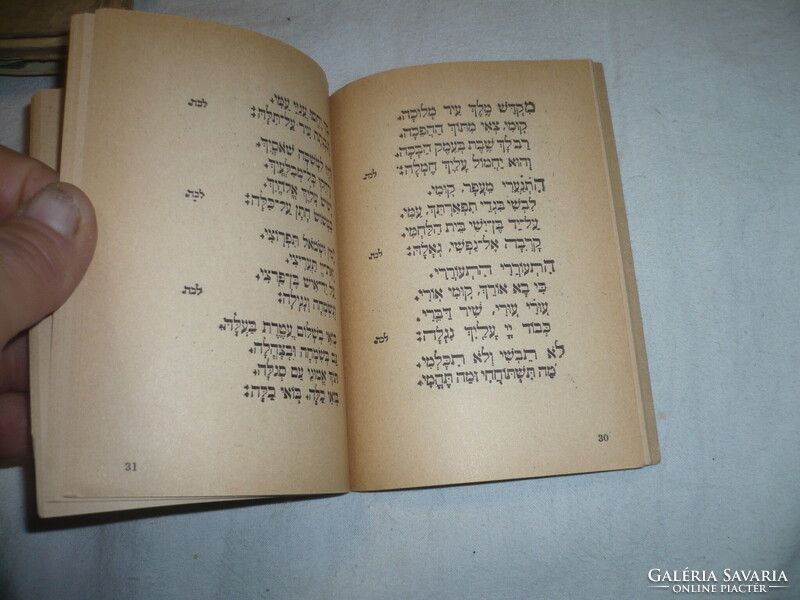 מִקְדַּשׁ מֶלֶךְ עִיר מְלוּכָה.
קוּמִי צְאִי מִתּוֹךְ הַהֲפֵכָה.
רַב לָךְ שֶׁבֶת בְּעֵמֶק הַבָּכָה.
וְהוּא יַחְמוֹל עָלַיִךְ חֶמְלָה: לכה
הִתְנַעֲרִי מֵעָפָר קוּמִי.
לִבְשִׁי בִּגְדֵי תִפְאַרְתֵּךְ עַמִּי.
עַל־יַד בֶּן־יִשַׁי בֵּית הַלַּחְמִי.
קָרְבָה אֶל־נַפְשִׁי גְאָלָהּ: לכה
הִתְעוֹרְרִי הִתְעוֹרְרִי.
כִּי בָא אוֹרֵךְ קוּמִי אוֹרִי.
עוּרִי עוּרִי שִׁיר דַּבֵּרִי.
כְּבוֹד יְיָ עָלַיִךְ נִגְלָה: לכה
לֹא תֵבשִׁי וְלֹא תִכָּלְמִי.
מַה תִּשְׁתּוֹחֲחִי וּמַה תֶּהֱמִי.
30
יֶחֱסוּ עֲנִיֵּי עַמִּי.
עִיר עַל־תִּלָּהּ: לכה
לִמְשִׁסָּה שֹׁאסָיִךְ.
כָּל־מְבַלְּעָיִךְ.
עָלַיִךְ אֱלֹהָיִךְ.
כִּמְשׂוֹשׂ חָתָן עַל־כַּלָּה: לכה
וּשְׂמֹאל תִּפְרוֹצִי.
תַּעֲרִיצִי.
אִישׁ בֶּן־פַּרְצִי.
וְנִשְׂמְחָה וְנָגִילָה: לכה
בּוֹאִי בְשָׁלוֹם עֲטֶרֶת בַּעְלָהּ.
גַּם בְּשִׂמְחָה וּבְצָהֳלָה.
תּוֹךְ אֱמוּנֵי עַם סְגֻלָּה.
בּוֹאִי כַלָּה. בּוֹאִי כַלָּה:
31
GALÉRIA SAVARIA
ONLINE PIACTÉR